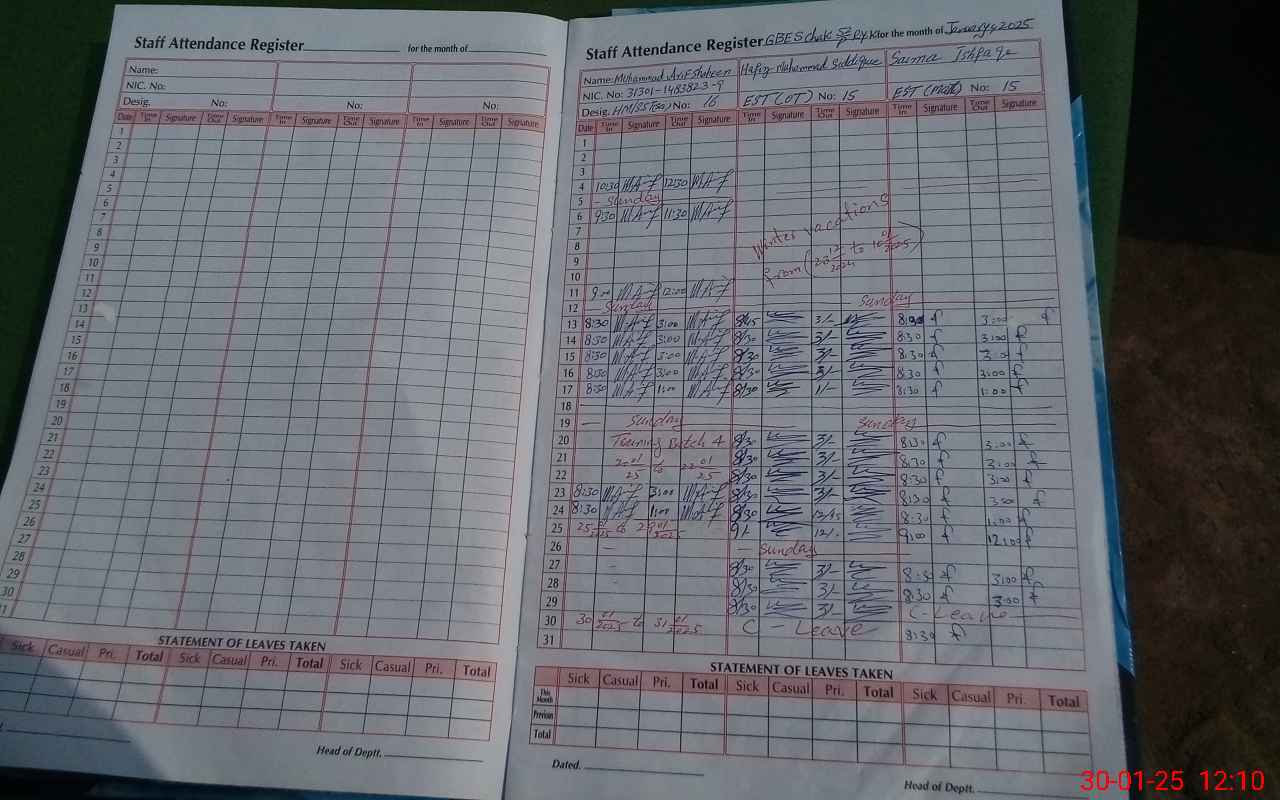 Staff Attendance Register for the month of
Name:
NIC. No:
Desig. No: No: No:
Date Time In Signature Time Out Signature Time In Signature Time Out Signature Time In Signature Time Out Signature
1
2
3
4
5
6
7
8
9
10
11
12
13
14
15
16
17
18
19
20
21
22
23
24
25
26
27
28
29
30
31
STATEMENT OF LEAVES TAKEN
Sick Casual Pri. Total Sick Casual Pri. Total Sick Casual Pri. Total
Head of Deptt.
Staff Attendance Register GBES Chak for the month of January, 2025
Name: Muhammad Arif Shaheen Hafiz Muhammad Siddique Saima Ishfaqe
NIC. No: 31301-1483823-9
Desig. HM/SST(Sci) No: 16 EST(OT) No: 15 EST (Math) No: 15
Date Time In Signature Time Out Signature Time In Signature Time Out Signature Time In Signature Time Out Signature
1
2
3
4 10:30 12:30
5 - Sunday
6 9:30 11:30
7 Winter vacations
8 from (23 12 2024 to 10 01 2025)
9
10
11 9:00 12:00
12 Sunday Sunday
13 8:30 3:00 8/45 3/- 8:30 3:00
14 8:30 3:00 8/30 3/- 8:30 3:00
15 8:30 3:00 8/30 3/- 8:30 3:00
16 8:30 3:00 8/30 3/- 8:30 3:00
17 8:30 1:00 8/30 1/- 8:30 1:00
18
19 Sunday Sunday
20 Training Batch 4 8/30 3/- 8:30 3:00
21 20 01 25 to 22 01 25 8/30 3/- 8:30 3:00
22 8/30 3/- 8:30 3:00
23 8:30 3:00 8/30 3/- 8:30 3:00
24 8:30 1:00 8/30 12/45 8:30 1:00
25 25 01 2025 to 29 01 2025 9/- 12/- 9:00 12:00
26 - - Sunday
27 - 8/30 3/- 8:30 3:00
28 - 8/30 3/- 8:30 3:00
29 8/30 3/- C - Leave
30 30 01 2025 to 31 01 2025 C - Leave 8:30
31
STATEMENT OF LEAVES TAKEN
Sick Casual Pri. Total Sick Casual Pri. Total Sick Casual Pri. Total
This Month
Previous
Total
Dated. Head of Deptt.
30-01-25 12:10